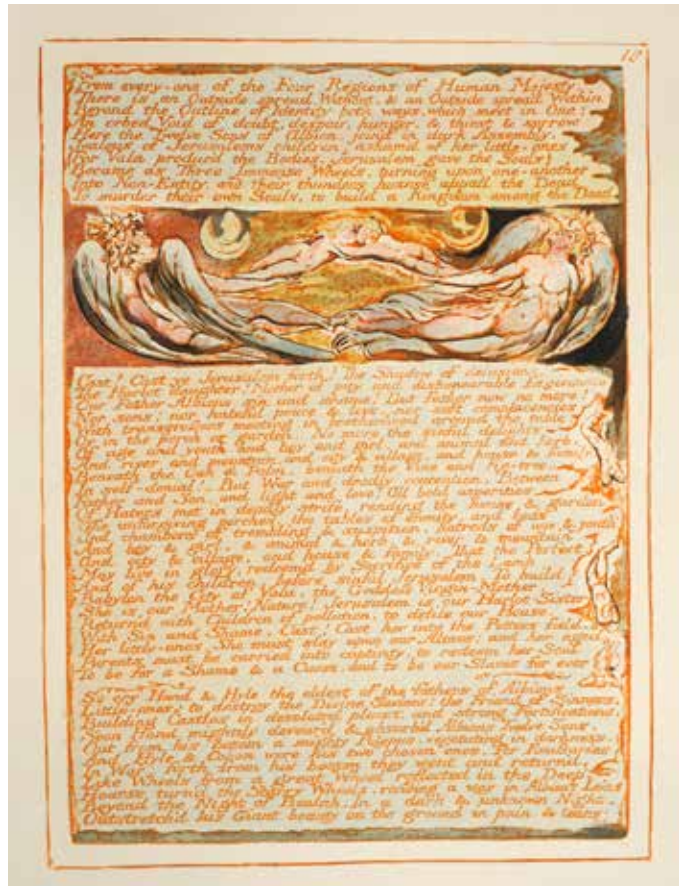 18
From every-one of the Four Regions of Human Majesty,
There is an Outside spread Without, & an Outside spread Within
Beyond the Outline of Identity both ways, which meet in One:
An orbed Void of doubt, despair, hunger, & thirst & sorrow.
Here the Twelve Sons of Albion, join'd in dark Assembly,
Jealous of Jerusalems children, asham'd of her little-ones
(For Vala produc'd the Bodies. Jerusalem gave the Souls)
Became as Three Immense Wheels, turning upon one-another
Into Non-Entity, and their thunders hoarse appall the Dead
To murder their own Souls, to build a Kingdom among the Dead
Cast! Cast ye Jerusalem forth! The Shadow of delusions!
The Harlot daughter! Mother of pity and dishonourable forgiveness
Our Father Albions sin and shame! But father now no more!
Nor sons! nor hateful peace & love, nor soft complacencies
With transgressors meeting in brotherhood around the table,
Or in the porch or garden. No more the sinful delights
Of age and youth and boy and girl and animal and herb,
And river and mountain, and city & village, and house & family,
Beneath the Oak & Palm, beneath the Vine and Fig-tree.
In self-denial!—But War and deadly contention, Between
Father and Son, and light and love! All bold asperities
Of Haters met in deadly strife, rending the house & garden
The unforgiving porches, the tables of enmity, and beds
And chambers of trembling & suspition, hatreds of age & youth
And boy & girl, & animal & herb, & river & mountain
And city & village, and house & family. That the Perfect,
May live in glory, redeem'd by Sacrifice of the Lamb
And of his children, before sinful Jerusalem. To build
Babylon the City of Vala, the Goddess Virgin-Mother.
She is our Mother! Nature! Jerusalem is our Harlot-Sister
Return'd with Children of pollution, to defile our House,
With Sin and Shame. Cast! Cast her into the Potters field.
Her little-ones, She must slay upon our Altars: and her aged
Parents must be carried into captivity, to redeem her Soul
To be for a Shame & a Curse, and to be our Slaves for ever
So cry Hand & Hyle the eldest of the fathers of Albions
Little-ones; to destroy the Divine Saviour; the Friend of Sinners,
Building Castles in desolated places, and strong Fortifications.
Soon Hand mightily devour'd & absorb'd Albions Twelve Sons.
Out from his bosom a mighty Polypus, vegetating in darkness,
And Hyle & Coban were his two chosen ones, for Emissaries
In War: forth from his bosom they went and return'd.
Like Wheels from a great Wheel reflected in the Deep.
Hoarse turn'd the Starry Wheels, rending a way in Albions Loins
Beyond the Night of Beulah. In a dark & unknown Night,
Outstretch'd his Giant beauty on the ground in pain & tears: